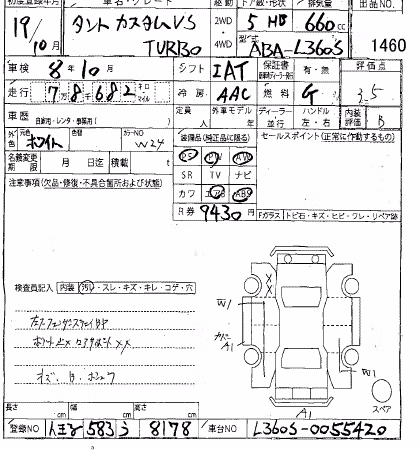 初度登録年月 車名・グレード 駆動 ドア数・形状 排気量 出品NO.
19/10月 タントカスタムVS TURBO 2WD ・ 4WD 5 HB 660cc
型式 ABA-L360S 1460
車検 8年10月 シフト IAT 保証書 有・無 評価点
走行 7万8682 キロ マイル 冷房 AAC 燃料 G 3.5
車歴 自家用・レンタ・事業用 定員 人 外車モデル 年 ディーラー・並行 ハンドル 左・右 内装評価 B
外色 元色 ホワイト 色替 カラーNO W24 装備品(純正品に限る) セールスポイント(正常に作動するもの)
PS PW AW
名義変更期限 月 日迄 積載 t SR TV ナビ
注意事項(欠品・修復・不具合箇所および状態) カワ エアB ABS
R券 9430円 Fガラス トビ石・キズ・ヒビ・ワレ・リペア跡
検査員記入 内装 ・スレ・キズ・キレ・コゲ・穴
W1
カバーA1
W1
キズ、
スペア
A1
長さ cm 幅 cm 高さ cm
登録NO 583 う 8178 車台NO L360S-0055420